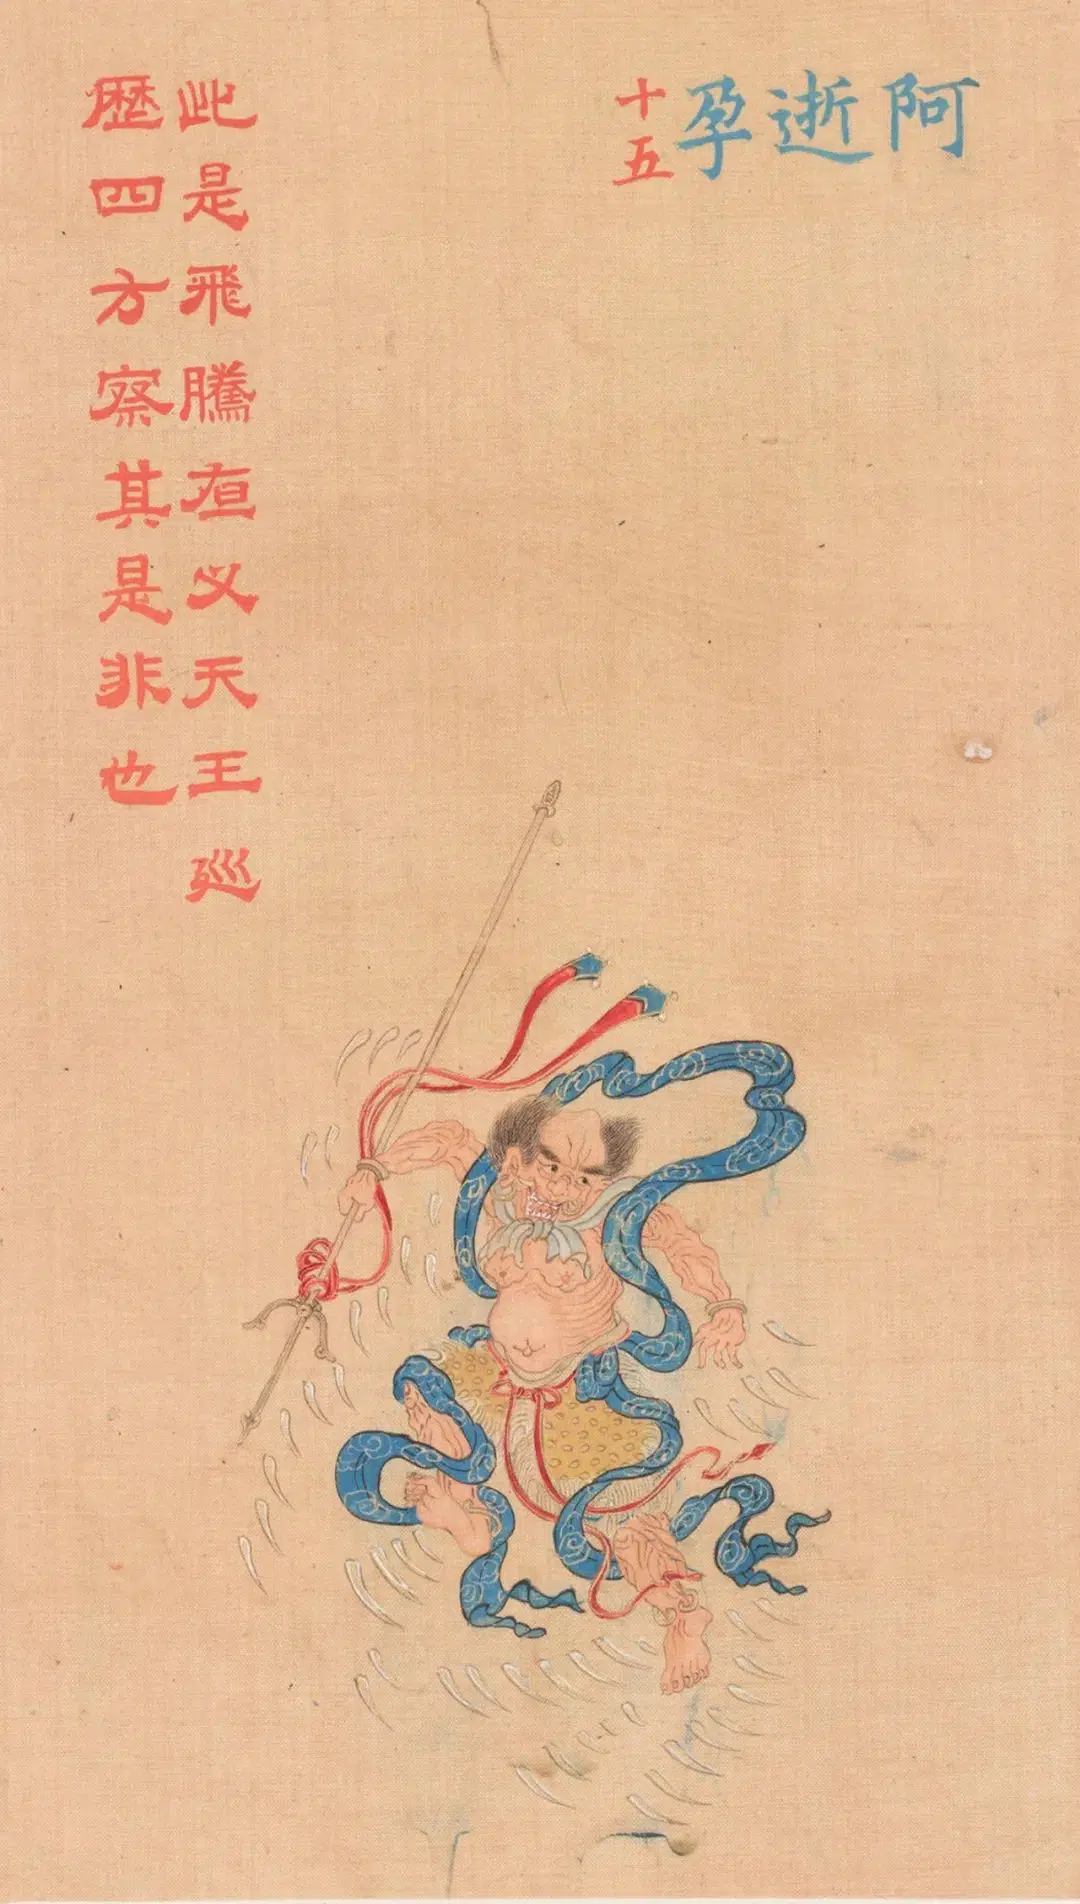 阿逝孕
十五
此是飛騰亱义天王廵
歴四方察其是非也